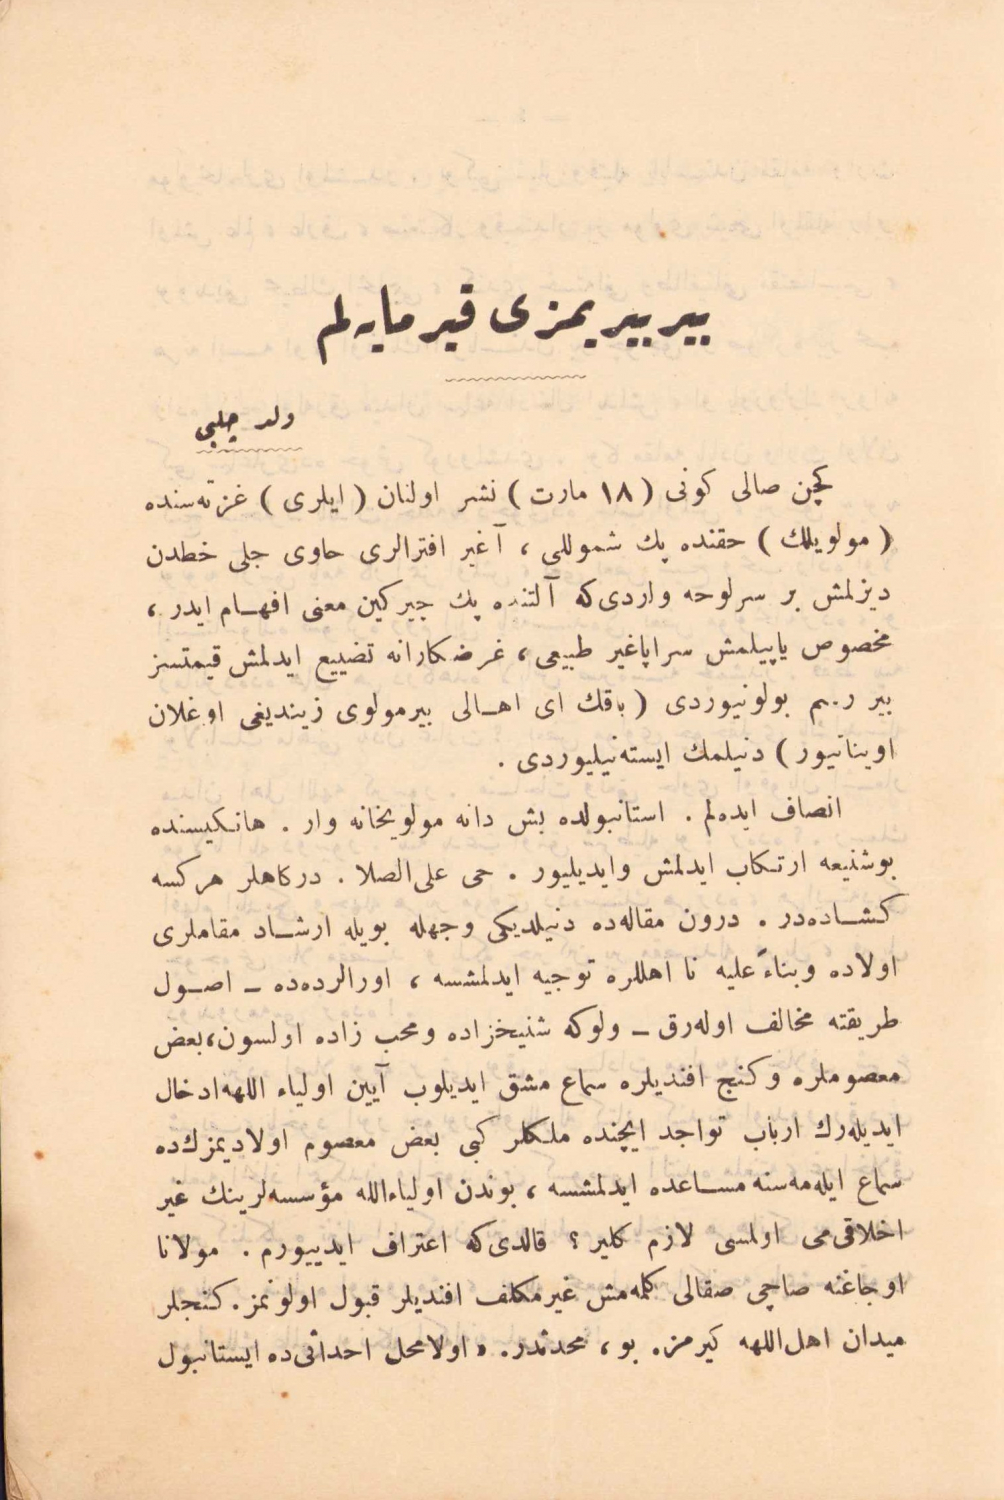 بیر بیریمزی قیرمایه‌لم
ولد چلبی
کچن صالی کونی ( ١٨ مارت ) نشر اولنان ( ایلری ) غزته‌سنده
( مولویلك ) حقنده پك شموللی ، آغیر افترالری حاوی جلی خطدن
دیزلمش بر سرلوحه واردی‌که آلتنده پك چیرکین معنی افهـام ایدر ،
مخصوص یاپیلمش سراپاغیر طبیعی ، غرضکارانه تضییع ایدلمش قیمتسز
بیر رسم بولونیوردی ( باقك ای اهـالی بیرمولوی زیندیغی اوغلان
اویناتیور ) دنیلمك ایسته‌نیلیوردی .
انصاف ایده‌لم . استانبولده بش دانه مولویخانه وار . هانکیسنده
بوشنیعه ارتکاب ایدلمش وایدیلیور . حی علی‌الصلا . درکاهلر هرکسه
کشـاده‌در . درون مقاله‌ده دنیلدیکی وجهله بویله ارشـاد مقاملری
اولاده وبناءً علیه نا اهللره توجیه ایدلمشسه ، اورالرده‌ده ـ اصـول
طریقته مخالف اوله‌رق ـ ولوکه شیخزاده ومحب زاده اولسون، بعض
معصوملره وکنج افندیلره سماع مشق ایدیلوب آیین اولیاء اللهه‌ادخال
ایدیله‌رك ارباب تواجد ایچنده ملکلر کبی بعض معصوم اولادیمزك‌ده
سماع ایله‌مه‌سنه مسـاعده ایدلمشسه ، بوندن اولیاءالله مؤسسه‌لرینك غیر
اخلاقی‌می اولمسی لازم کلیر ؟ قالدی‌که اعتراف ایدییورم . مولانا
اوجاغنه صاچی صقالی کله‌مش غیرمکلف افندیلر قبول اولونمز. کنجلر
میدان اهل‌اللهه کیرمز. بو ، محدثدر. اولامحل احداثی‌ده ایستانبول